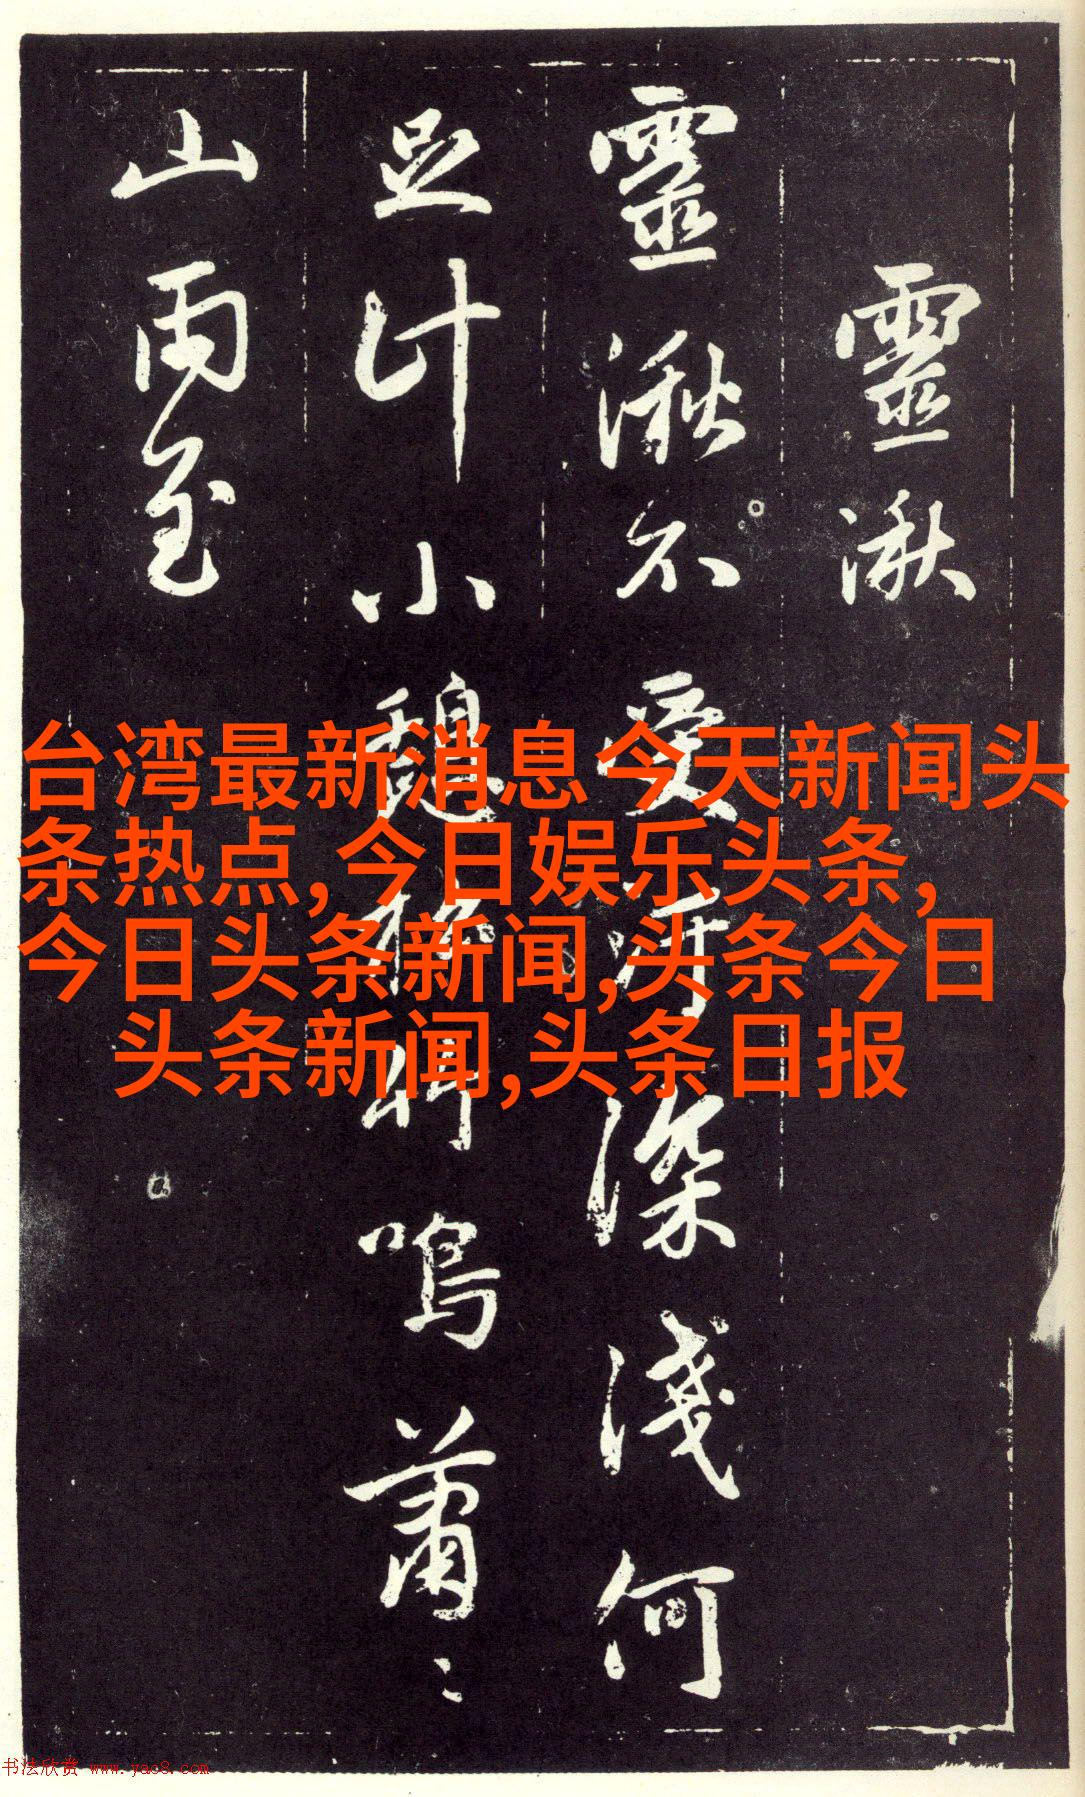 靈湫
靈湫不受汙深淺何
足計小魏稚川鳴蕭〻
山雨至
台湾最新消息今天新闻头
条热点,今日娱乐头条,
今日头条新闻,头条今日
头条新闻,头条日报
书法欣赏 www.yac8.com